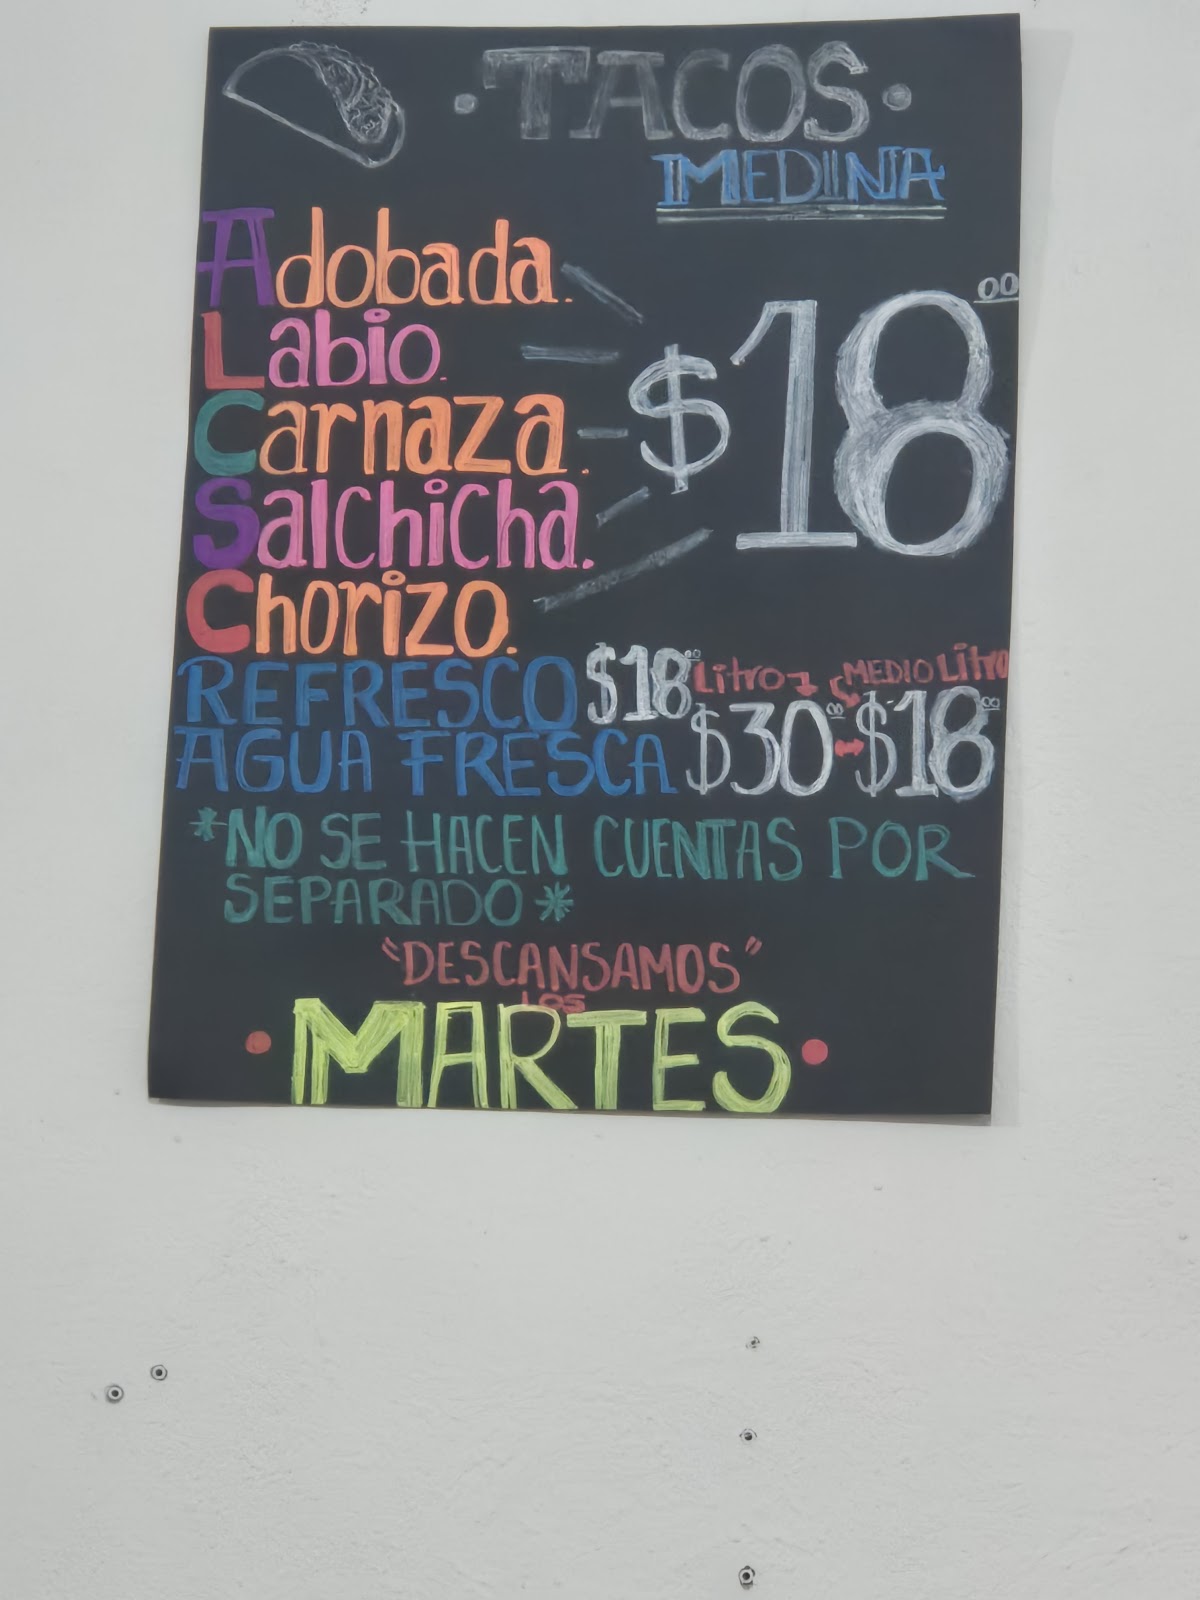 ·TACOS·
MEDINA
Adobada.
Labio.
Carnaza.
Salchicha.
Chorizo.
$18.00
REFRESCO $18.00 Litro MEDIO LITRO
AGUA FRESCA $30.00 $18.00
*NO SE HACEN CUENTAS POR
SEPARADO*
"DESCANSAMOS"
LOS
·MARTES·